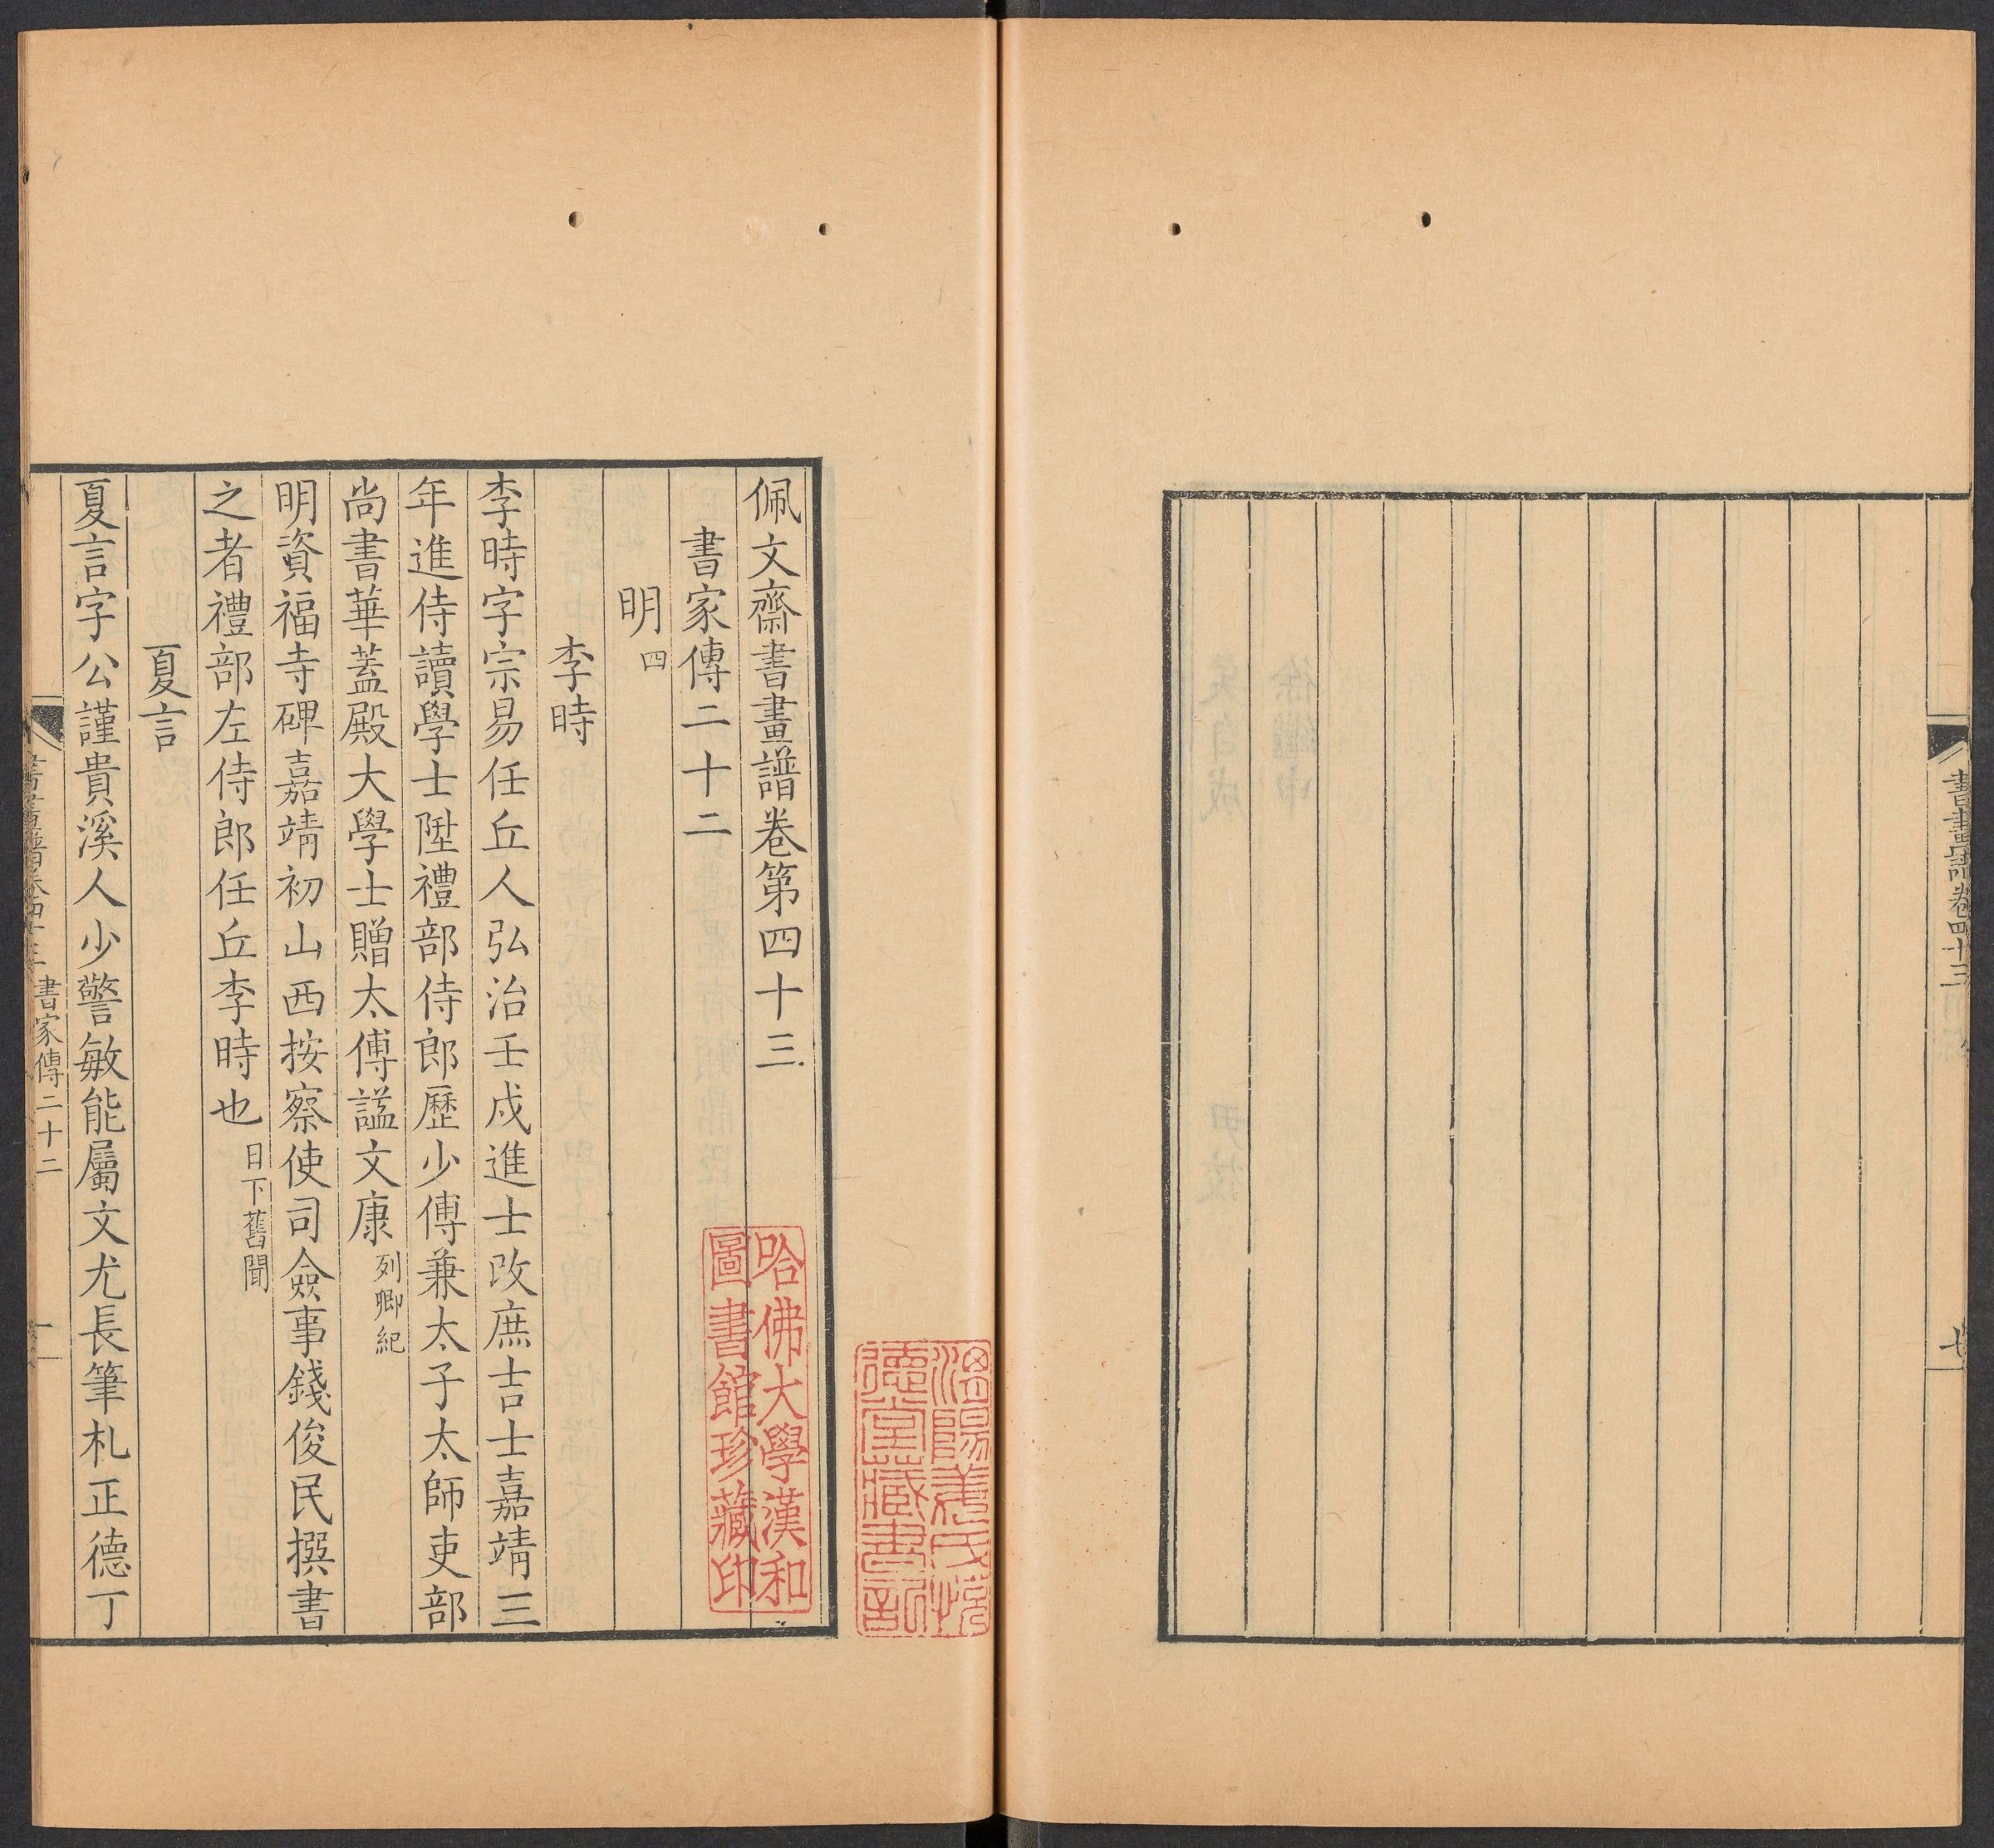 書畫譜卷四十三
七
佩文齋書畫譜卷第四十三
書家傳二十二
明四
李時
李時字宗易任丘人弘治壬戌進士改庶吉士嘉靖三
年進侍讀學士陞禮部侍郎歷少傅兼太子太師吏部
尚書華蓋殿大學士贈太傅諡文康列卿紀
明資福寺碑嘉靖初山西按察使司僉事錢俊民撰書
之者禮部左侍郎任丘李時也日下舊聞
夏言
夏言字公謹貴溪人少警敏能屬文尤長筆札正德丁
書畫譜卷四十三 書家傳二十二
一
哈佛大學漢和
圖書館珍藏印
德堂藏書記